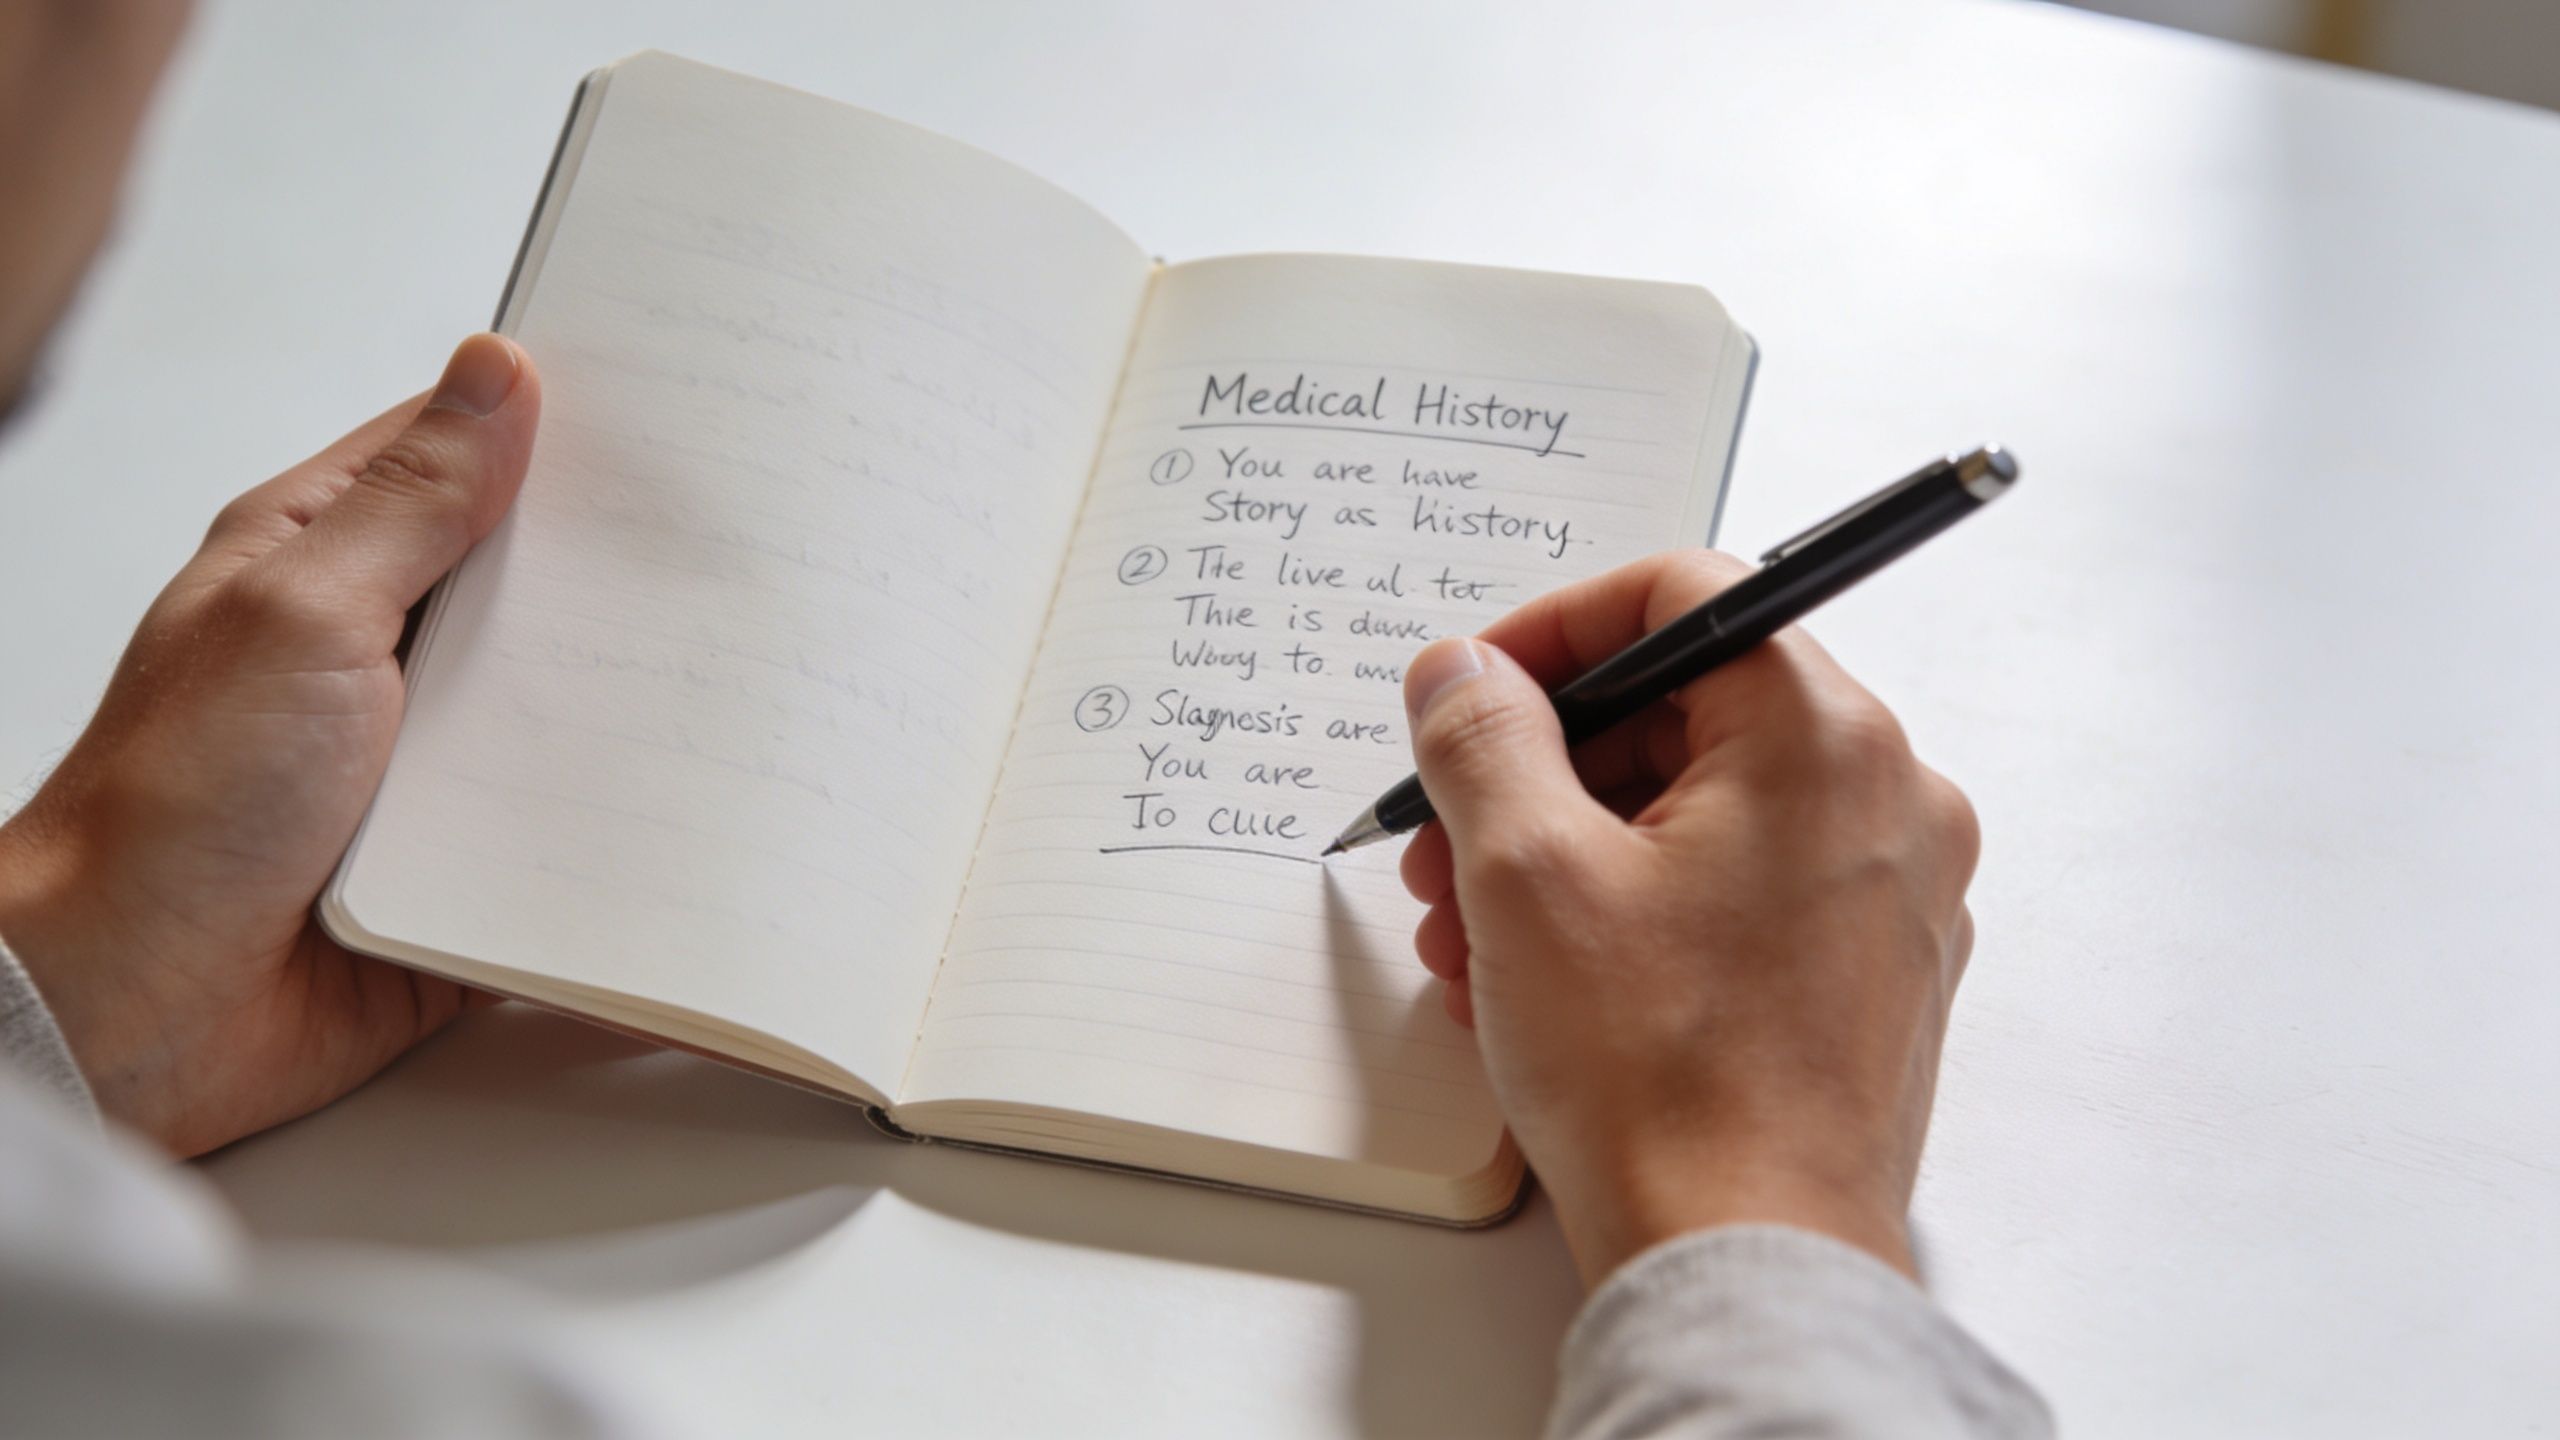 Medical History
① You are have
Story as history.
② The live ul
This is
to
③ Slagnesis are
You are
To cuie